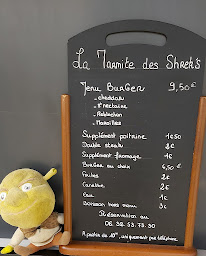 La Marmite des Shrek's
Menu Burger 9,50€
- cheddar
- St nectaire
- Reblochon
- Maroilles
Supplément poitrine 1€50
Double steak 2€
Supplément fromage 1€
Burger au choix 6,50€
Frites 2€
Canette 2€
Eau 1€
Boisson hors menu 3€
Réservation au
A partir de 10h, uniquement par téléphone